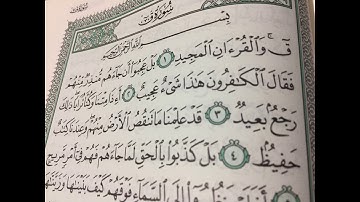 سُورَةُ قٓ
بِسْمِ ٱللَّهِ ٱلرَّحْمَٰنِ ٱلرَّحِيمِ
قٓ ۚ وَٱلْقُرْءَانِ ٱلْمَجِيدِ ١ بَلْ عَجِبُوٓا۟ أَن جَآءَهُم مُّنذِرٌ مِّنْهُمْ
فَقَالَ ٱلْكَٰفِرُونَ هَٰذَا شَىْءٌ عَجِيبٌ ٢ أَءِذَا مِتْنَا وَكُنَّا تُرَابًا ذَٰلِكَ
رَجْعٌۢ بَعِيدٌ ٣ قَدْ عَلِمْنَا مَا تَنقُصُ ٱلْأَرْضُ مِنْهُمْ وَعِندَنَا كِتَٰبٌ
حَفِيظٌۢ ٤ بَلْ كَذَّبُوا۟ بِٱلْحَقِّ لَمَّا جَآءَهُمْ فَهُمْ فِىٓ أَمْرٍ مَّرِيجٍ
إِلَى ٱلسَّمَآءِ فَوْقَهُمْ كَيْفَ بَنَيْنَٰهَا وَزَيَّنَّٰهَا